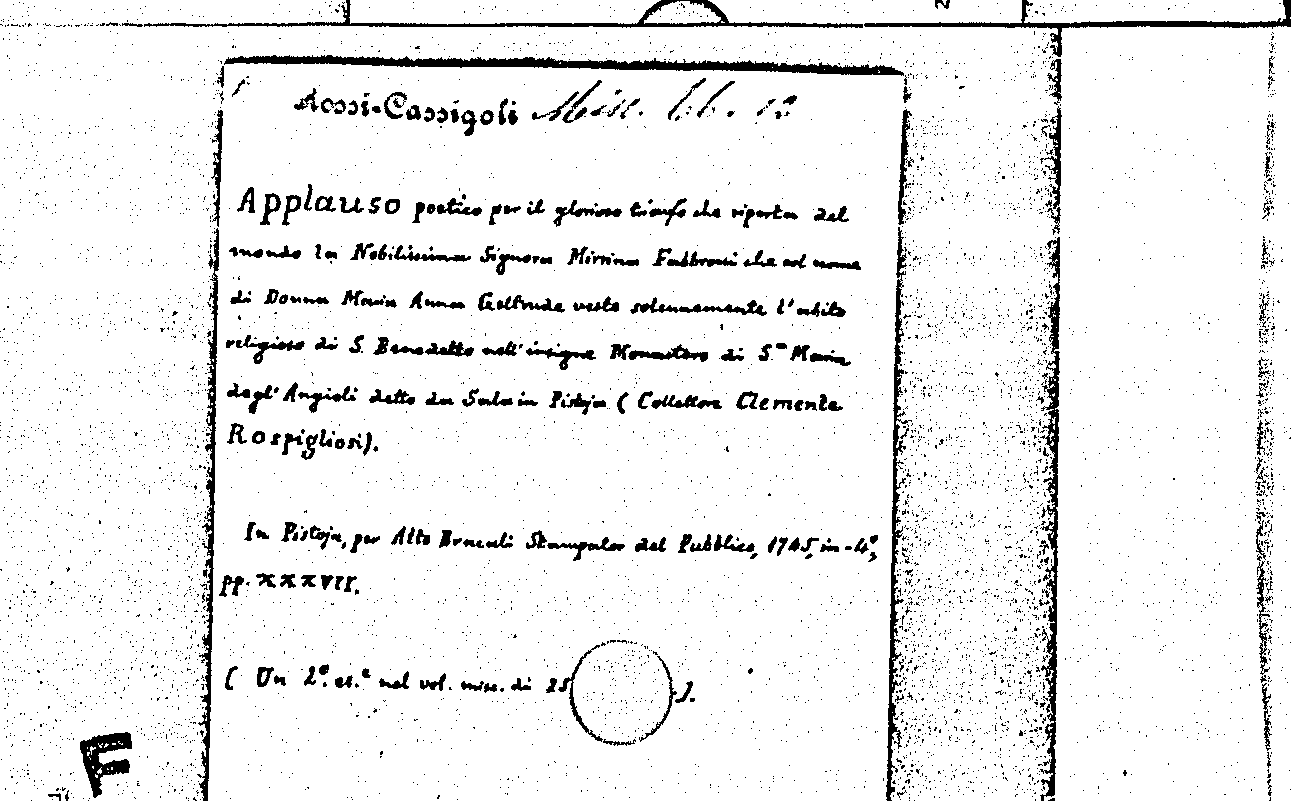 Rossi-Cassigoli Misc. 66. 13
Applauso poetico per il glorioso trionfo che riporta del
mondo la Nobilissima Signora Mirrina Fabbroni che col nome
di Donna Maria Anna Geltrude veste solennemente l'abito
religioso di S. Benedetto nell'insigne Monastero di S.ta Maria
degl'Angioli detto da Sala in Pistoja (Collettore Clemente
Rospigliosi).
In Pistoja, per Atto Bracali Stampator del Pubblico, 1745, in-4°,
pp. XXXVII.
( Un 2°. es.e nel vol. misc. di 25 ).
F